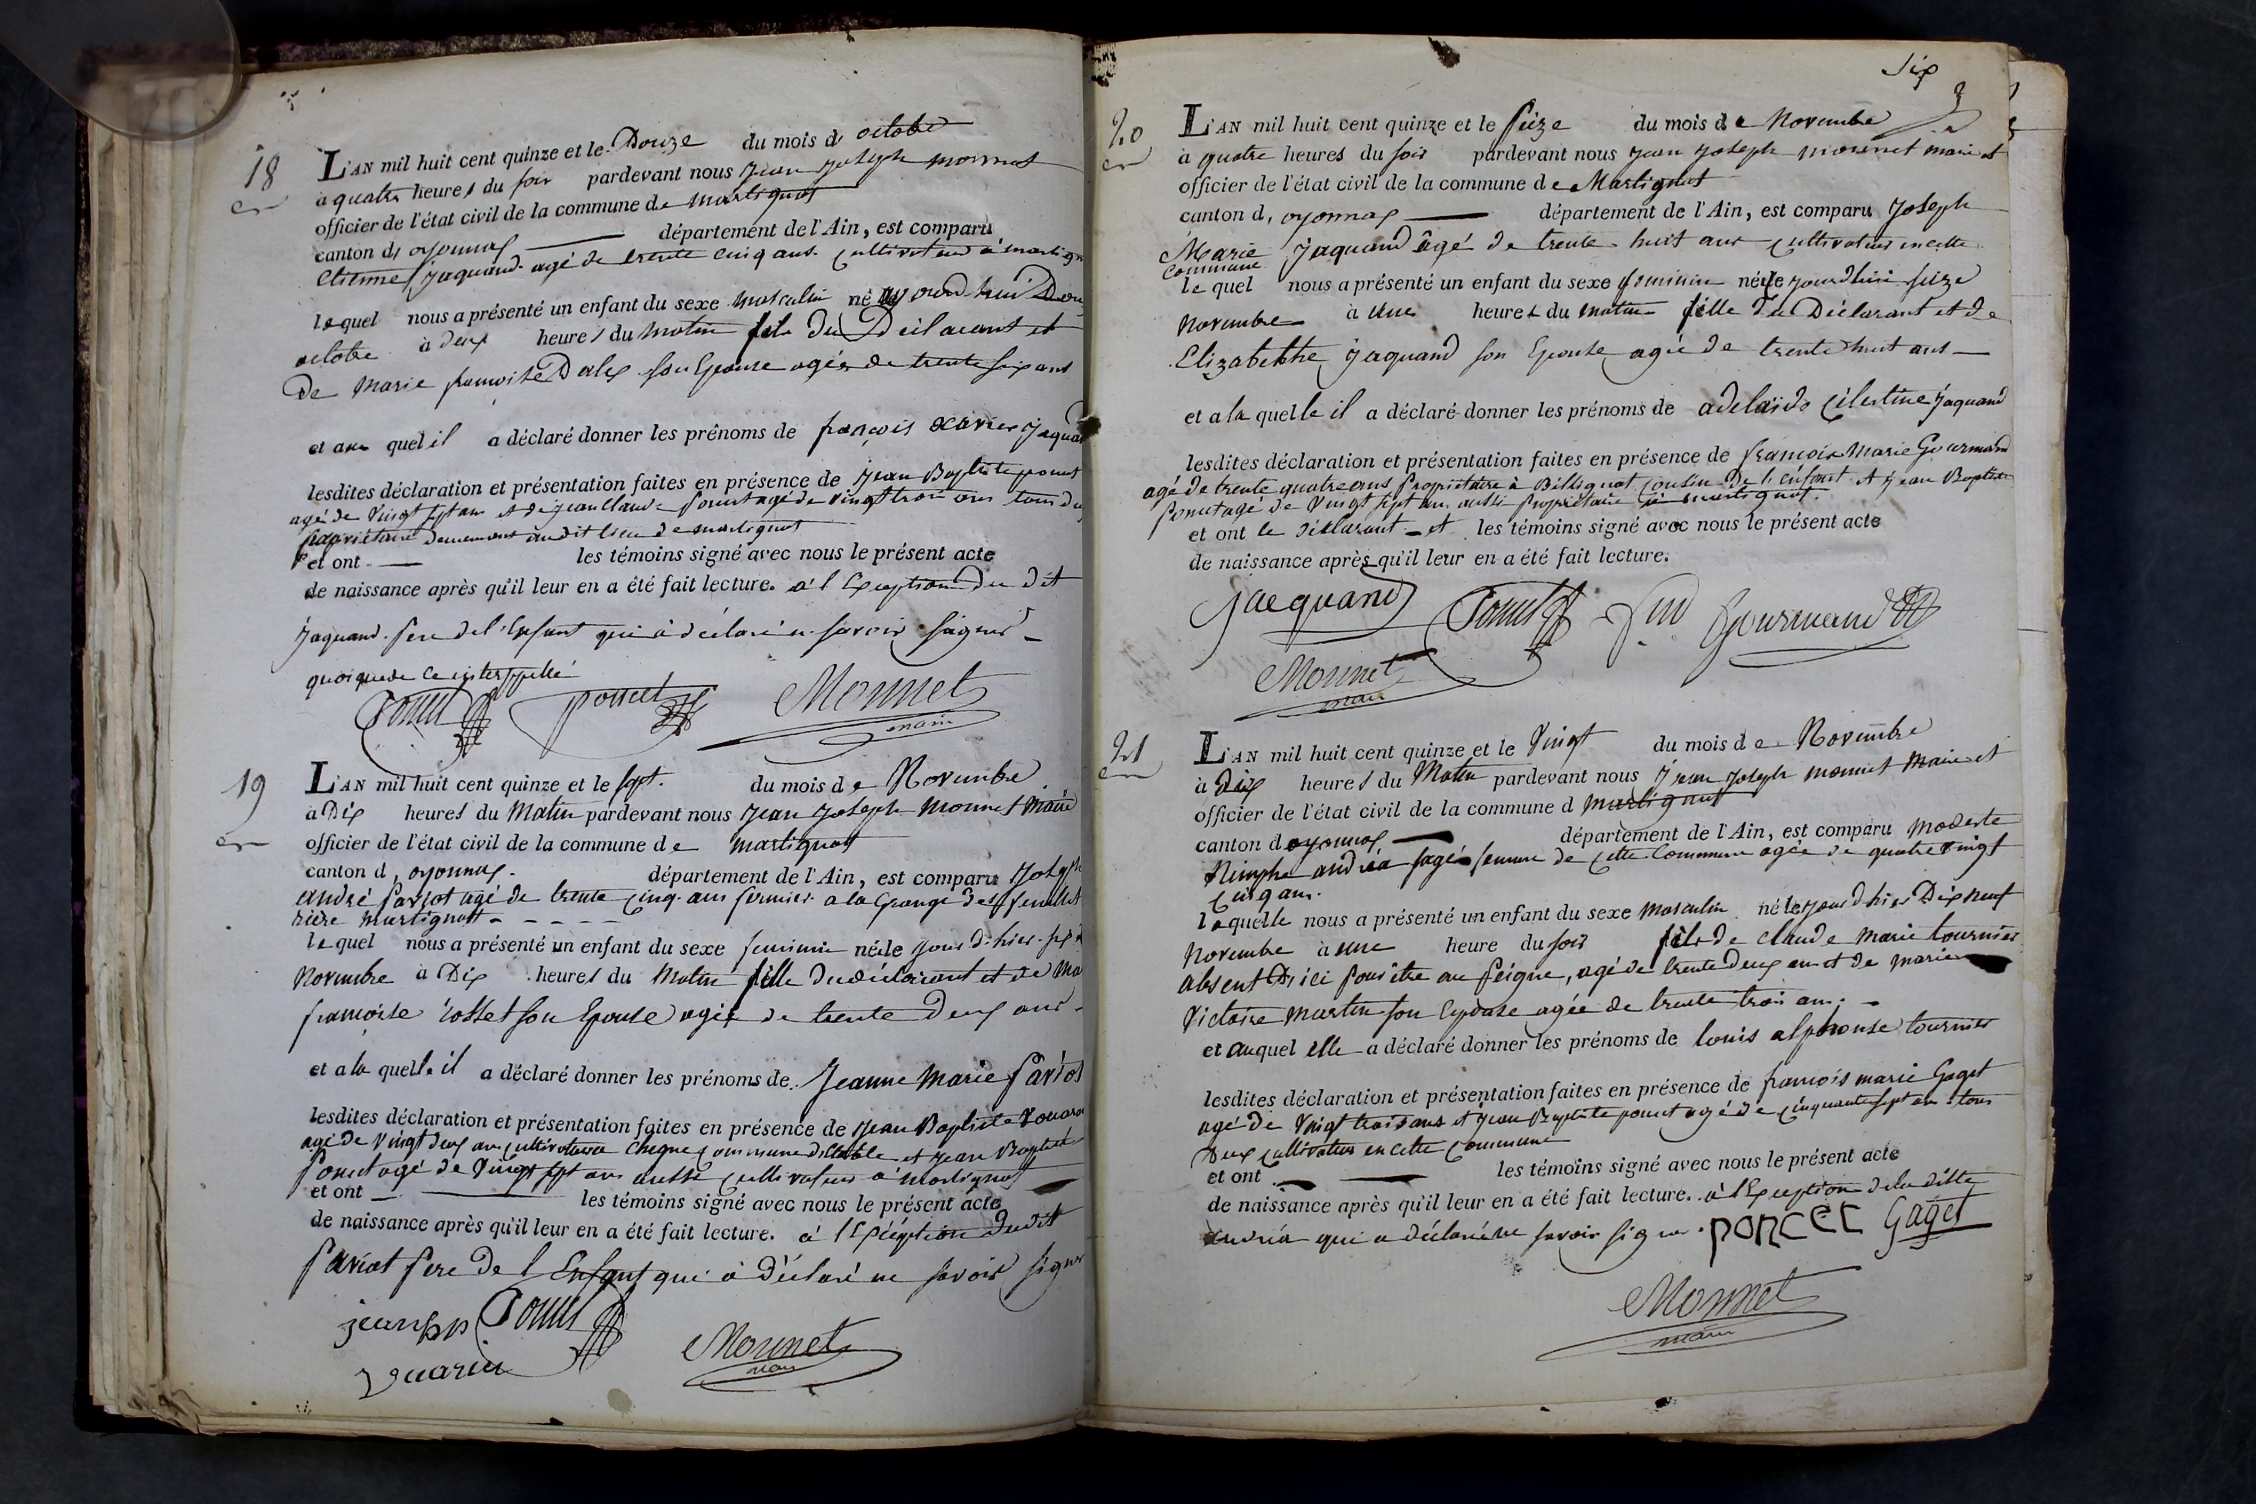 18
L'AN mil huit cent quinze et le Douze du mois d' octobre
à quatre heures du soir pardevant nous Jean Joseph monnet
officier de l'état civil de la commune de martignat
canton d, oyonnax département de l'Ain, est comparu
Etienne Jaquand agé de trente cinq ans cultivateur à martign
lequel nous a présenté un enfant du sexe masculin né aujourd'hui Dou
octobre à deux heures du matin fils du Déclarant et
de Marie françoise Dalex son Epouse agée de trente six ans
et au quel il a déclaré donner les prénoms de françois xavier Jaquand
lesdites déclaration et présentation faites en présence de Jean Baptiste poncet
agé de vingt sept ans et de jean claude Poncet agé de vingt trois ans tous deux
propriétaires demeurant au dit lieu de martignat
et ont les témoins signé avec nous le présent acte
de naissance après qu'il leur en a été fait lecture. à l'Exception du dit
Jaquand pere de l'Enfant qui à déclaré ne savoir signer
quoique de ce interppellé
Poncet poncet Monnet
maire
19
L'AN mil huit cent quinze et le sept. du mois de Novembre
à Dix heures du Matin pardevant nous Jean Joseph Monnet Maire
officier de l'état civil de la commune de martignat
canton d, oyonnax. département de l'Ain, est comparu Joseph
andré Pariot agé de trente cinq ans fermier a la Grange des
riere martignat
lequel nous a présenté un enfant du sexe feminin née le jour d'hier six
Novembre à Dix heures du Matin fille du déclarant et de Ma
françoise rosset son Epouse agée de trente Deux ans
et a la quelle il a déclaré donner les prénoms de Jeanne Marie Pariot
lesdites déclaration et présentation faites en présence de Jean Baptiste
agé de vingt deux ans cultivateur commune et Jean Baptiste
Poncet agé de vingt sept ans aussi cultivateur à Martignat
et ont les témoins signé avec nous le présent acte
de naissance après qu'il leur en a été fait lecture. à l'Exception dudit
Pariot Pere de l'Enfant qui à déclaré ne savoir signer
Poncet
vuarin Monnet
maire
Six
20
L'AN mil huit cent quinze et le Seize du mois de Novembre
à quatre heures du soir pardevant nous Jean Joseph monnet maire et
officier de l'état civil de la commune de Martignat
canton d, oyonnax département de l'Ain, est comparu Joseph
Marie Jaquand âgé de trente huit ans cultivateur en cette
commune
lequel nous a présenté un enfant du sexe feminin née le jourd'hui seize
Novembre à une heures du matin fille du Déclarant et de
Elizabethe Jaquand son Epouse agée de trente huit ans
et a la quelle il a déclaré donner les prénoms de adelaïde Célestine Jaquand
lesdites déclaration et présentation faites en présence de françois Marie Gourmand
agé de trente quatre ans Proprietaire à Bellignat cousin de l'enfant et Jean Baptiste
Poncet agé de vingt sept ans aussi Proprietaire à martignat.
et ont le déclarant et les témoins signé avec nous le présent acte
de naissance après qu'il leur en a été fait lecture.
Jacquand Poncet Gourmand
Monnet
maire
21
L'AN mil huit cent quinze et le Vingt du mois de Novembre
à Dix heures du Matin pardevant nous Jean Joseph monnet Maire et
officier de l'état civil de la commune d martignat
canton d oyonnax département de l'Ain, est comparu modeste
Nimphe andréa sage femme de cette commune agée de quatre vingt
cinq ans.
laquelle nous a présenté un enfant du sexe masculin né le jour d'hier Dix neuf
Novembre à une heure du soir fils de claude marie tournier
absent D'ici pour être au peigne, agé de trente deux ans et de marie
Victoire Martin son Epouse agée de trente trois ans;
et auquel elle a déclaré donner les prénoms de louis alphonse tournier
lesdites déclaration et présentation faites en présence de françois marie Gaget
agé de vingt trois ans et jean Baptiste poncet agé de cinquante sept ans tous
Deux cultivateurs en cette commune
et ont les témoins signé avec nous le présent acte
de naissance après qu'il leur en a été fait lecture. à l'Exception de la ditte
andréa qui a déclaré ne savoir signer. PONCEt Gaget
Monnet
maire